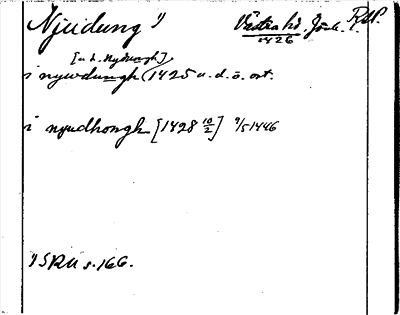 Njudung ¹⁾ Västra hd. Jönk. l. RAP.
1426
[a. b. Nydungh]
i nywdungh (1425 u. d. o. ort.
i nyudhongh [1428 10/2] 9/5 1446
¹⁾ SRU s. 166.